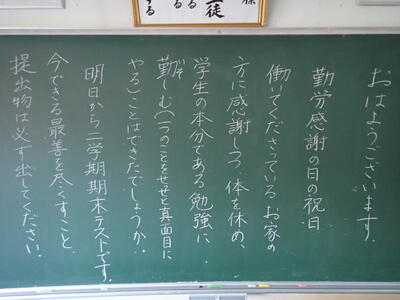 おはようございます。
勤労感謝の日の祝日
働いてくださっているお家の
方に感謝しつつ、体を休め、
学生の本分である勉強に
勤しむ(一つのことをせっせと真面目に
やる)ことはできたでしょうか。
明日から二学期期末テストです。
今できる最善を尽くすこと。
提出物は必ず出してください。